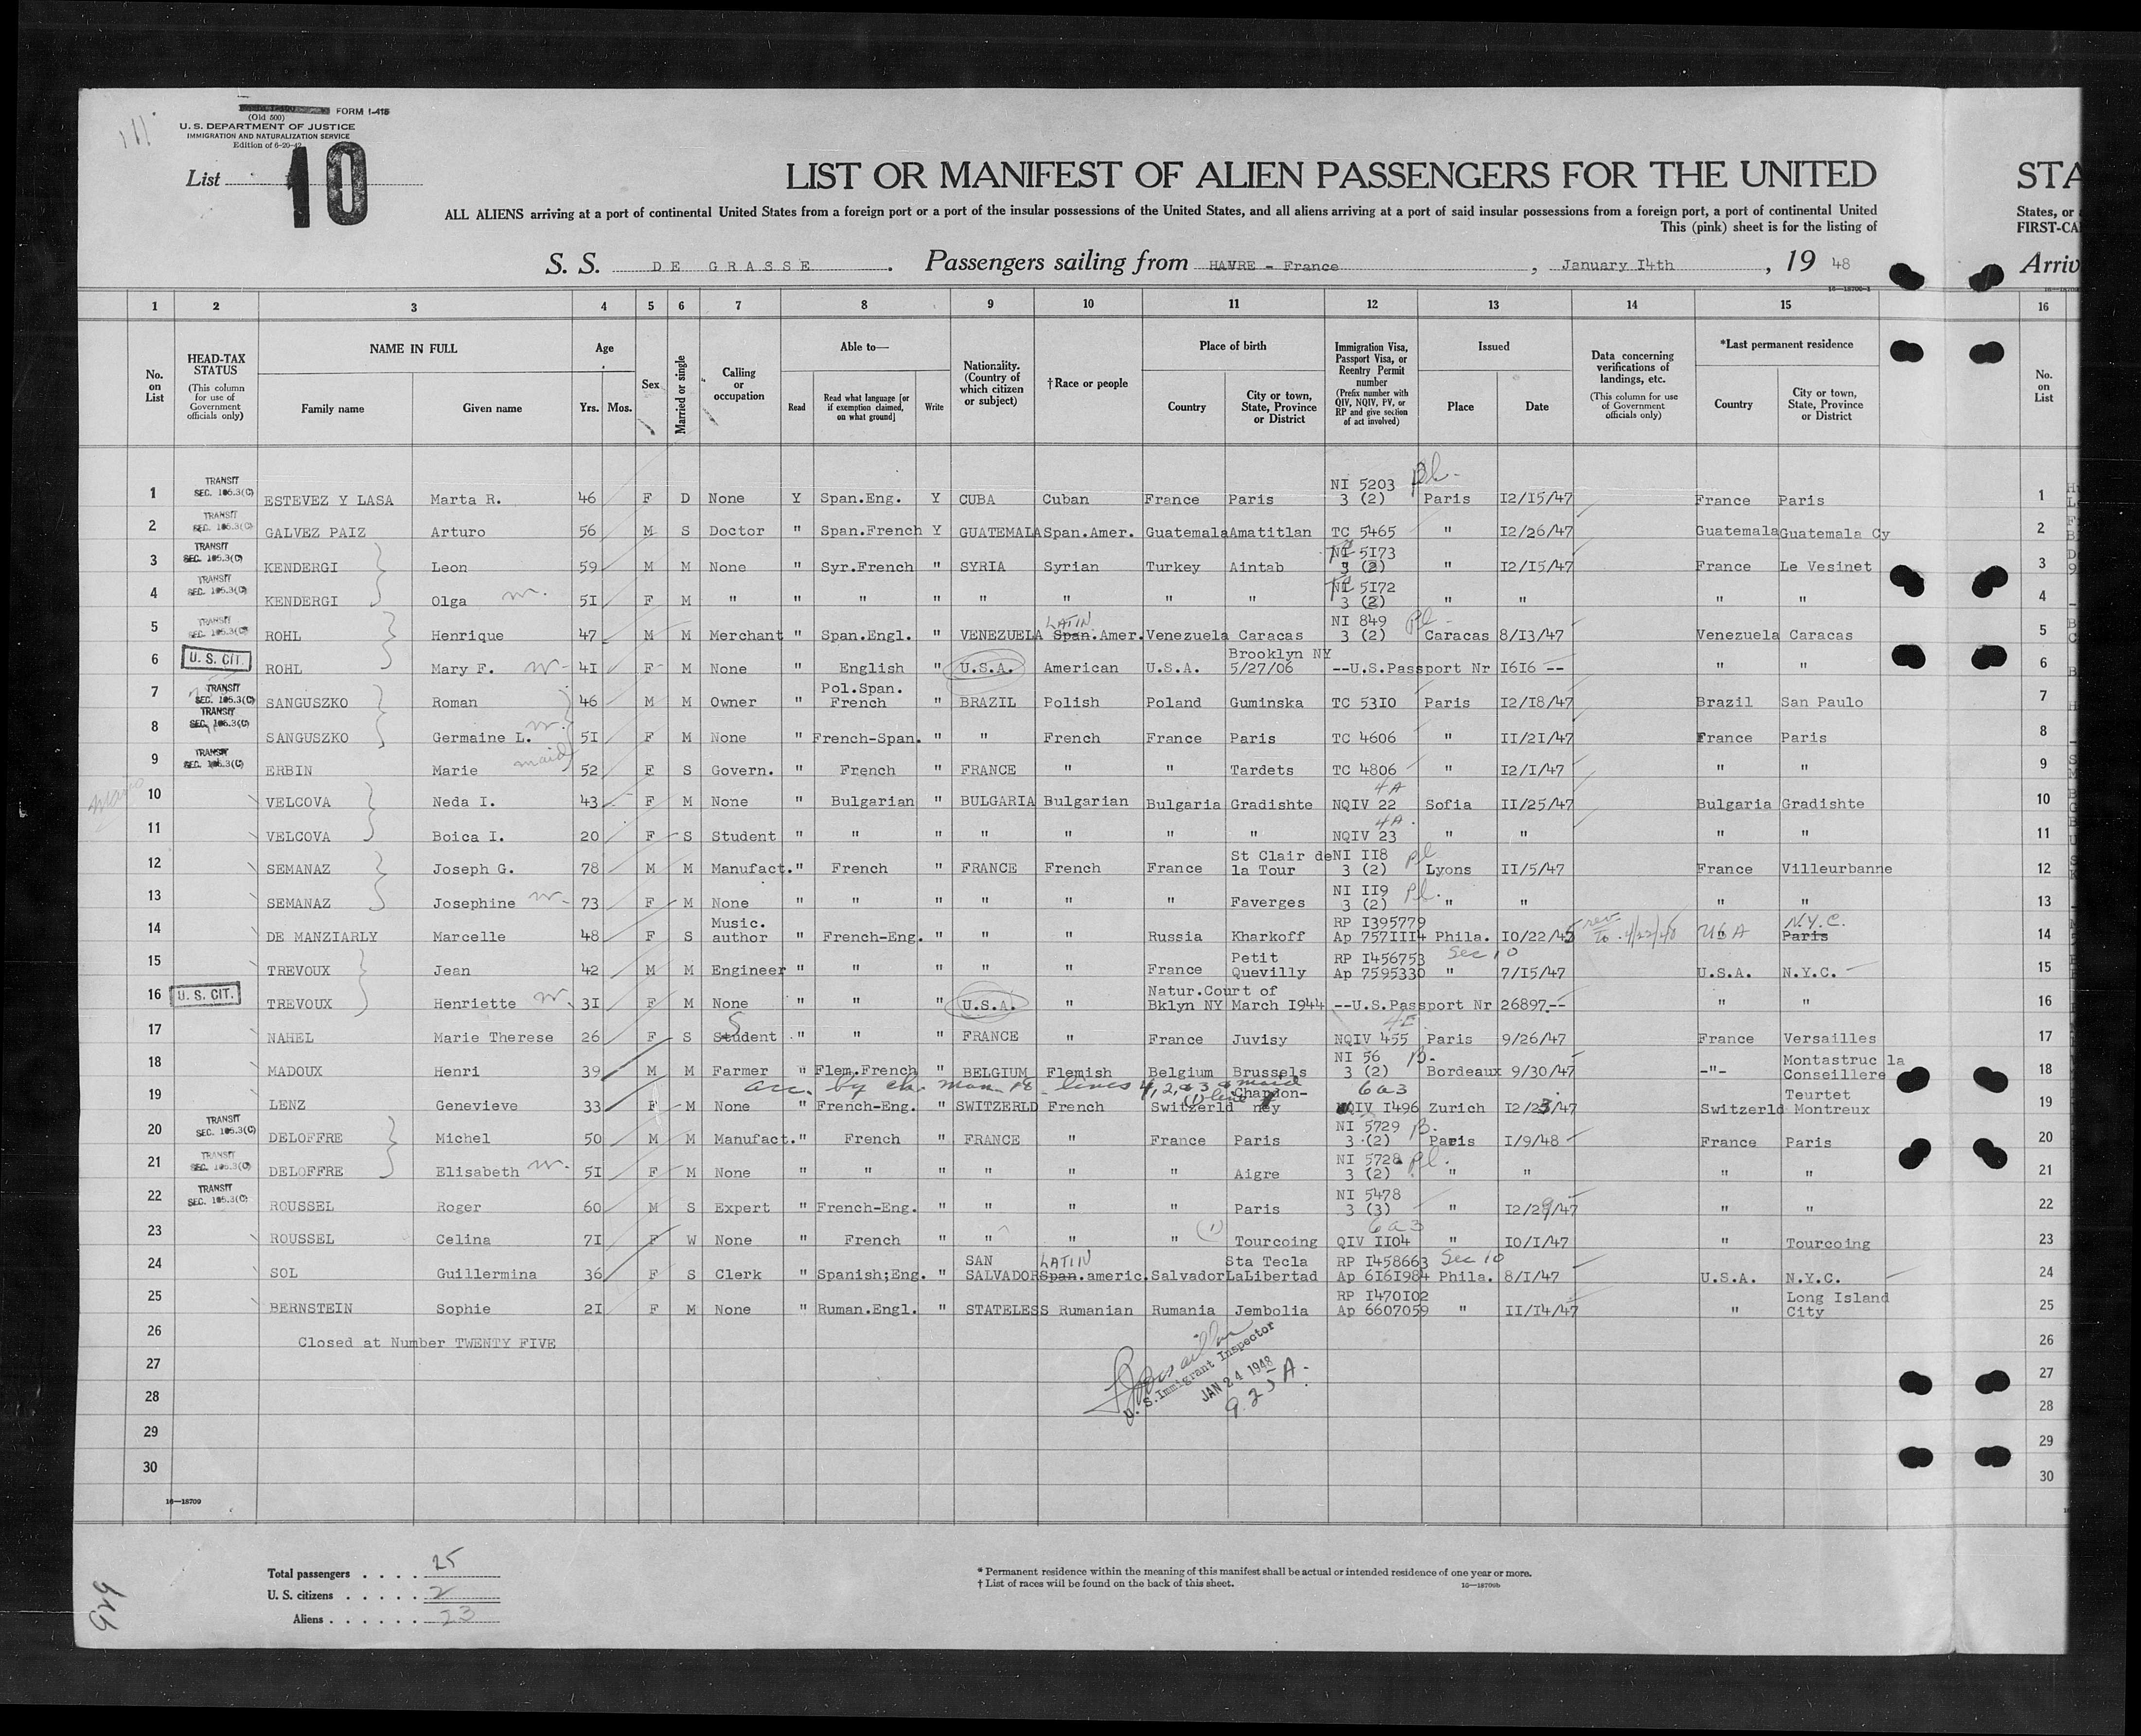 FORM I-415
(Old 500)
U. S. DEPARTMENT OF JUSTICE
IMMIGRATION AND NATURALIZATION SERVICE
Edition of 6-20-42
List 10
LIST OR MANIFEST OF ALIEN PASSENGERS FOR THE UNITED STA
ALL ALIENS arriving at a port of continental United States from a foreign port or a port of the insular possessions of the United States, and all aliens arriving at a port of said insular possessions from a foreign port, a port of continental United States, or
This (pink) sheet is for the listing of FIRST-CA
S. S. DE GRASSE . Passengers sailing from HAVRE - France , January I4th , 19 48 Arriv
1 2 3 4 5 6 7 8 9 10 11 12 13 14 15 16
No. on List
HEAD-TAX STATUS (This column for use of Government officials only)
NAME IN FULL Family name Given name
Age Yrs. Mos.
Sex
Married or single
Calling or occupation
Able to— Read Read what language [or if exemption claimed, on what ground] Write
Nationality. (Country of which citizen or subject)
†Race or people
Place of birth Country City or town, State, Province or District
Immigration Visa, Passport Visa, or Reentry Permit number (Prefix number with QIV, NQIV, PV, or RP and give section of act involved)
Issued Place Date
Data concerning verifications of landings, etc. (This column for use of Government officials only)
*Last permanent residence Country City or town, State, Province or District
No. on List
1 TRANSIT SEC. 105.3(C) ESTEVEZ Y LASA Marta R. 46 F D None Y Span.Eng. Y CUBA Cuban France Paris NI 5203 3 (2) Paris I2/I5/47 France Paris 1
2 TRANSIT SEC. 105.3(C) GALVEZ PAIZ Arturo 56 M S Doctor " Span.French Y GUATEMALA Span.Amer. Guatemala Amatitlan TC 5465 " I2/26/47 Guatemala Guatemala Cy 2
3 TRANSIT SEC. 105.3(C) KENDERGI Leon 59 M M None " Syr.French " SYRIA Syrian Turkey Aintab NI 5I73 3 (2) " I2/I5/47 France Le Vesinet 3
4 TRANSIT SEC. 105.3(C) KENDERGI Olga 5I F M " " " " " " " " NI 5I72 3 (2) " " " " 4
5 TRANSIT SEC. 105.3(C) ROHL Henrique 47 M M Merchant " Span.Engl. " VENEZUELA LATIN Span.Amer. Venezuela Caracas NI 849 3 (2) Caracas 8/I3/47 Venezuela Caracas 5
6 U. S. CIT. ROHL Mary F. 4I F M None " English " U.S.A. American U.S.A. Brooklyn NY 5/27/06 --U.S.Passport Nr I6I6 -- " " 6
7 TRANSIT SEC. 105.3(C) SANGUSZKO Roman 46 M M Owner " Pol.Span. French " BRAZIL Polish Poland Guminska TC 53I0 Paris I2/I8/47 Brazil San Paulo 7
8 TRANSIT SEC. 105.3(C) SANGUSZKO Germaine L. 5I F M None " French-Span. " " French France Paris TC 4606 " II/2I/47 France Paris 8
9 TRANSIT SEC. 105.3(C) ERBIN Marie maid 52 F S Govern. " French " FRANCE " " Tardets TC 4806 " I2/I/47 " " 9
10 VELCOVA Neda I. 43 F M None " Bulgarian " BULGARIA Bulgarian Bulgaria Gradishte 4A NQIV 22 Sofia II/25/47 Bulgaria Gradishte 10
11 VELCOVA Boica I. 20 F S Student " " " " " " " 4A NQIV 23 " " " " 11
12 SEMANAZ Joseph G. 78 M M Manufact. " French " FRANCE French France St Clair de la Tour NI II8 3 (2) Lyons II/5/47 France Villeurbanne 12
13 SEMANAZ Josephine 73 F M None " " " " " " Faverges NI II9 3 (2) " " " " 13
14 DE MANZIARLY Marcelle 48 F S Music. author " French-Eng. " " " Russia Kharkoff RP I395779 Ap 757III4 Phila. I0/22/45 USA N.Y.C. Paris 14
15 TREVOUX Jean 42 M M Engineer " " " " " France Petit Quevilly RP I456753 Ap 7595330 Sec 10 " 7/I5/47 U.S.A. N.Y.C. 15
16 U. S. CIT. TREVOUX Henriette 3I F M None " " " U.S.A. " Natur.Court of Bklyn NY March I944 --U.S.Passport Nr 26897.-- " " 16
17 NAHEL Marie Therese 26 F S Student " " " FRANCE " France Juvisy NQIV 455 Paris 9/26/47 France Versailles 17
18 MADOUX Henri 39 M M Farmer " Flem.French " BELGIUM Flemish Belgium Brussels NI 56 3 (2) Bordeaux 9/30/47 -"- Montastruc la Conseillere 18
19 LENZ Genevieve 33 F M None " French-Eng. " SWITZERLD French Switzerld Chardon-ney 6a3 QIV I496 Zurich I2/23/47 Switzerld Teurtet Montreux 19
20 TRANSIT SEC. 105.3(C) DELOFFRE Michel 50 M M Manufact. " French " FRANCE " France Paris NI 5729 3 (2) Paris I/9/48 France Paris 20
21 TRANSIT SEC. 105.3(C) DELOFFRE Elisabeth 5I F M None " " " " " " Aigre NI 5728 3 (2) " " " " 21
22 TRANSIT SEC. 105.3(C) ROUSSEL Roger 60 M S Expert " French-Eng. " " " " Paris NI 5478 3 (3) " I2/29/47 " " 22
23 ROUSSEL Celina 7I F W None " French " " " " (1) Tourcoing 6a3 QIV II04 " I0/I/47 " Tourcoing 23
24 SOL Guillermina 36 F S Clerk " Spanish;Eng. " SAN SALVADOR LATIN Span.americ. Salvador Sta Tecla LaLibertad RP I458663 Ap 6I6I984 Sec 10 Phila. 8/I/47 U.S.A. N.Y.C. 24
25 BERNSTEIN Sophie 2I F M None " Ruman.Engl. " STATELESS Rumanian Rumania Jembolia RP I470I02 Ap 6607059 " II/I4/47 " Long Island City 25
26 Closed at Number TWENTY FIVE 26
27 27
28 28
29 29
30 30
U. S. Immigrant Inspector
JAN 24 1948
9.25 A.
16—18709
Total passengers . . . . 25
U. S. citizens . . . . . 2
Aliens . . . . . . 23
* Permanent residence within the meaning of this manifest shall be actual or intended residence of one year or more.
† List of races will be found on the back of this sheet.
16—18709b